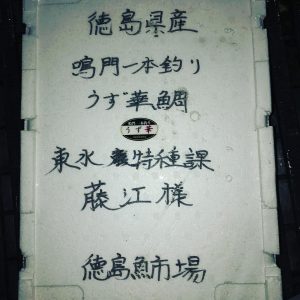 徳島県産
鳴門一本釣り
うず華鯛
うず華
東水 特種課
藤江様
徳島魚市場